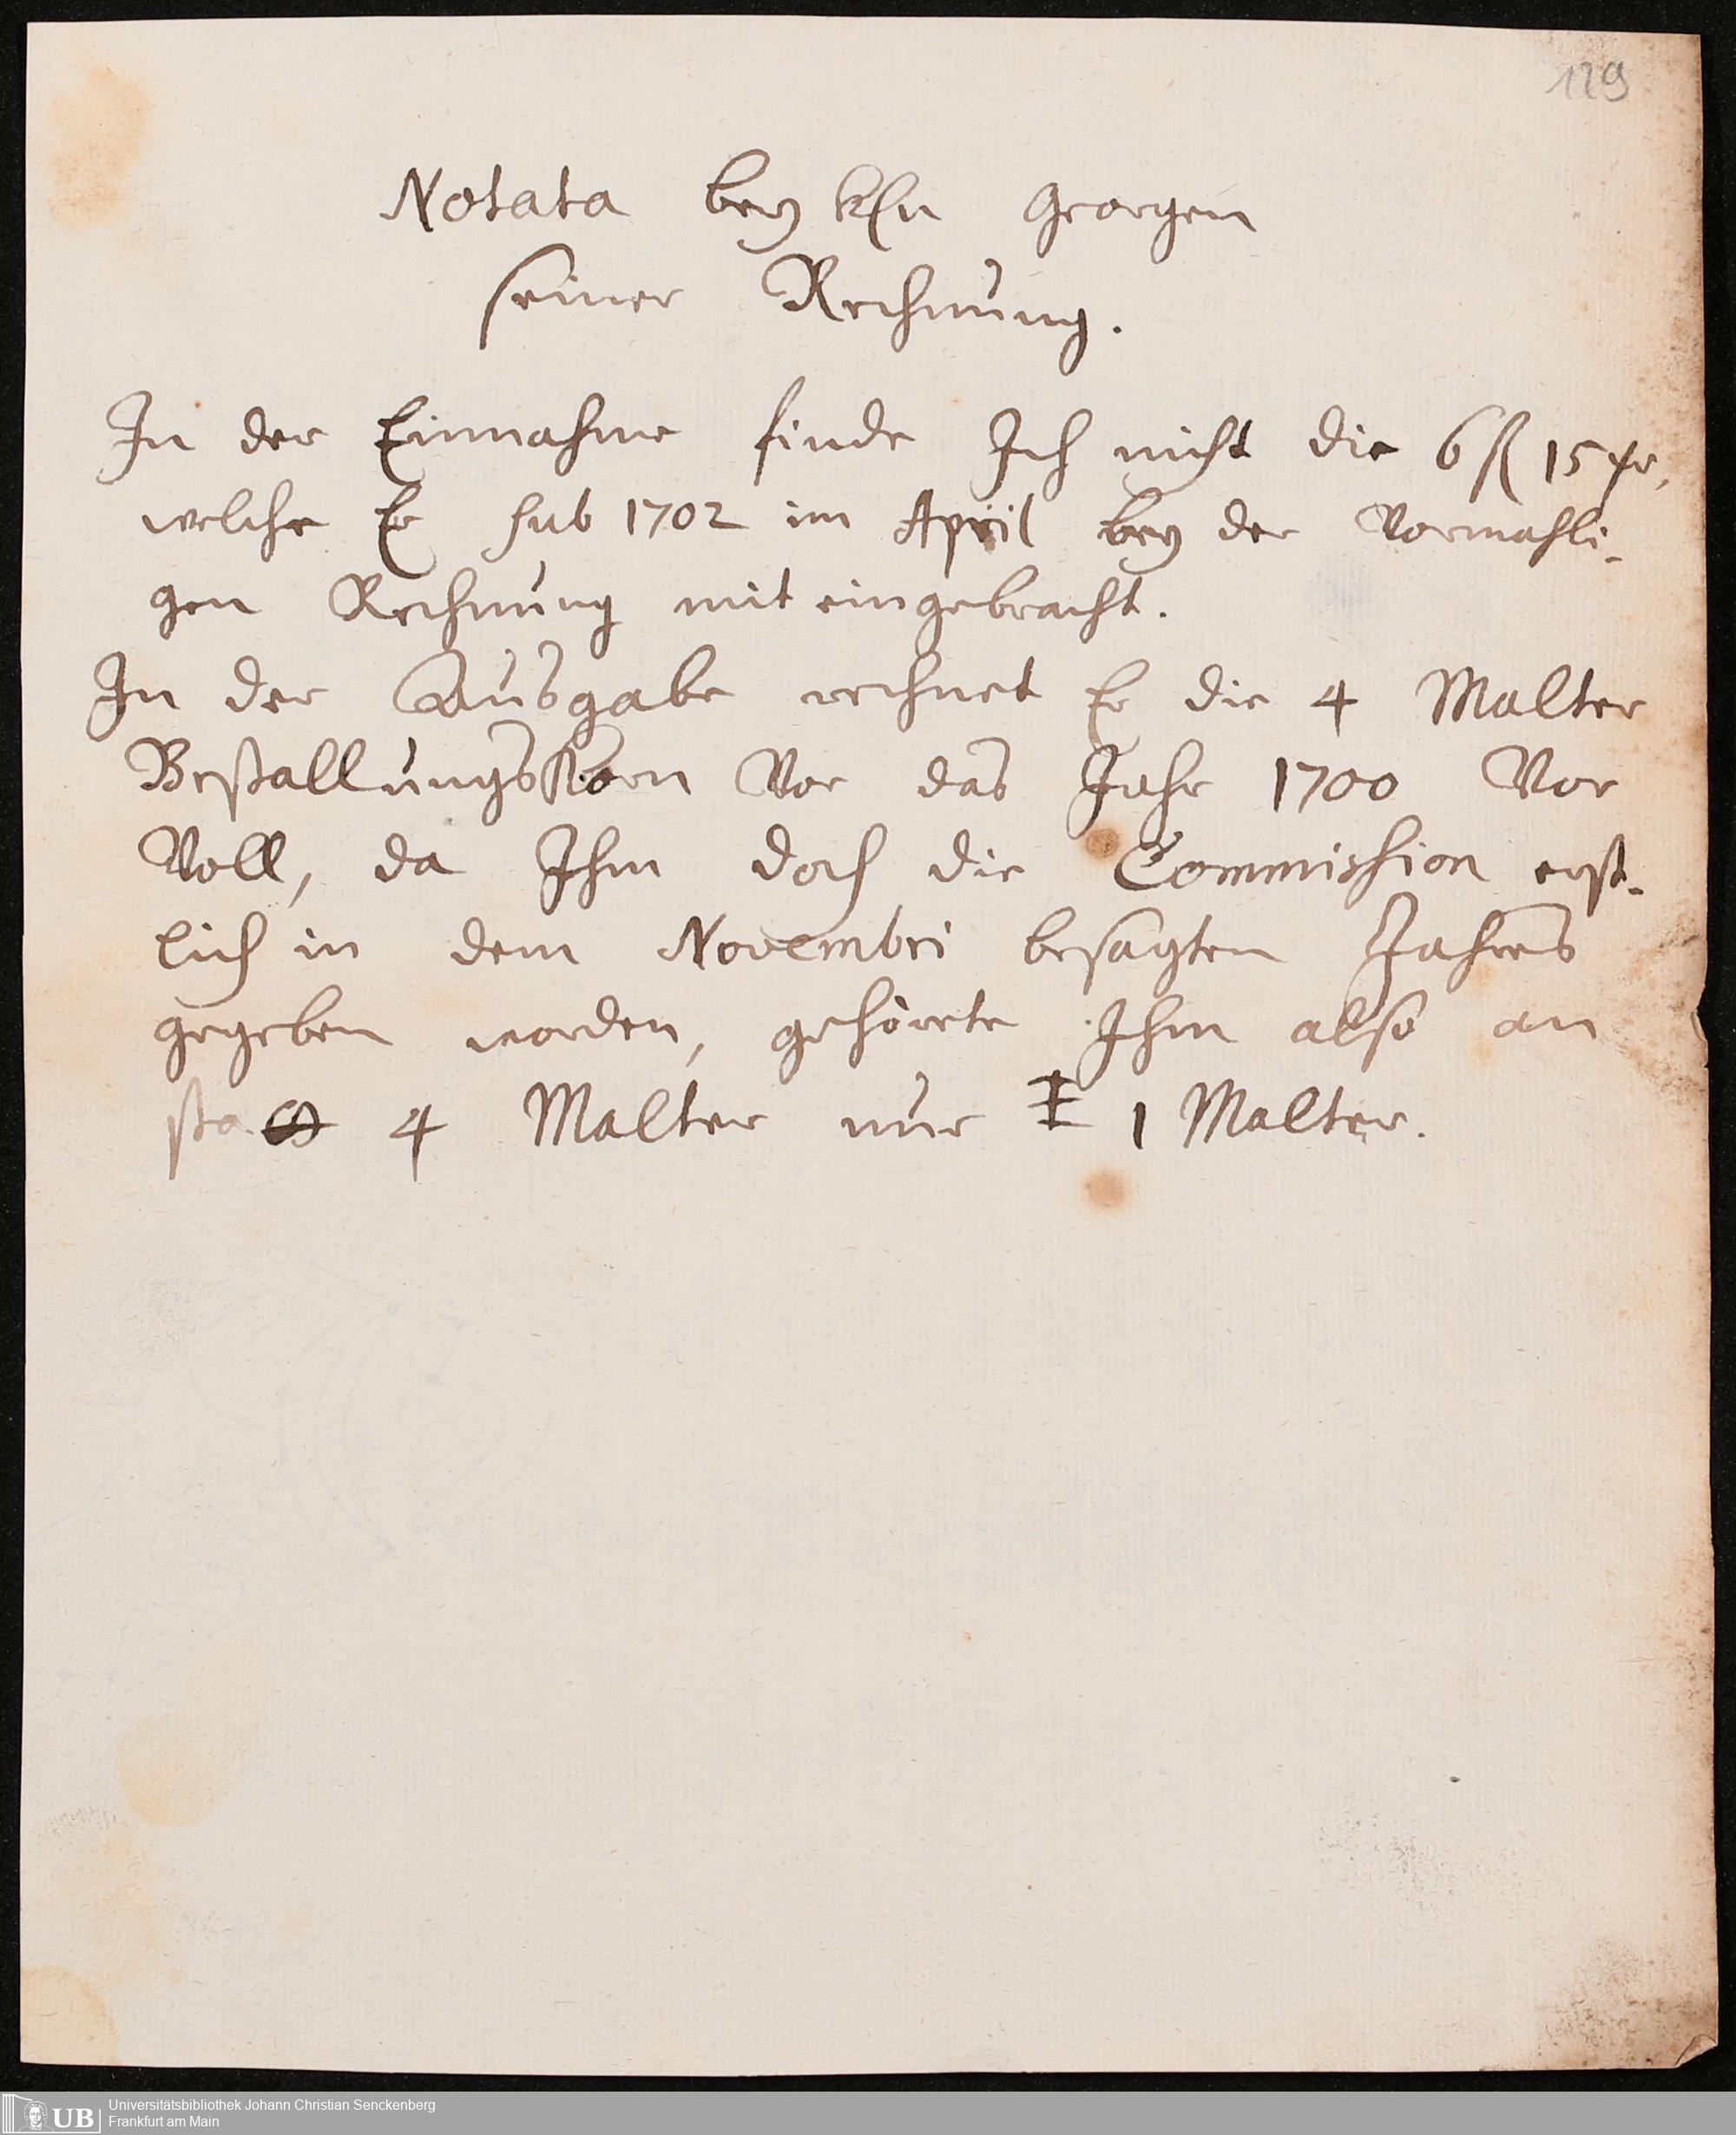 129
Notata bey Georgen
seiner Rechnung.
In der Einnahme finde Ich nicht die 6 fl 15 xr,
welche Er sub 1702 im April bey der Vormahli-
gen Rechnung mit eingebracht.
In der Ausgabe rechnet Er die 4 Malter
BestallungsKorn Vor das Jahr 1700 Vor
Voll, da Ihm doch die Commission erst-
lich in dem Novembri besagten Jahres
gegeben worden, gehörete Ihm also an
4 Malter nur 1 Malter.
UB
Universitätsbibliothek Johann Christian Senckenberg
Frankfurt am Main